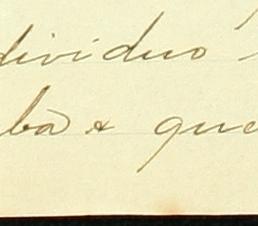 dividuo
ba & que